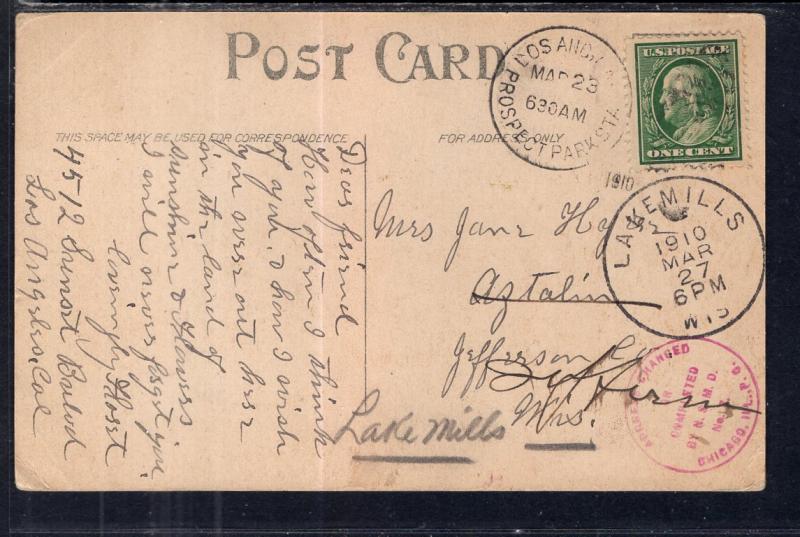 POST CARD
THIS SPACE MAY BE USED FOR CORRESPONDENCE
FOR ADDRESS ONLY
Dear friend
How often I think
of you, & how I wish
you were out here
in the land of
sunshine & flowers
I will never forget you
lovingly
4512 Sunset Bulvd
Los Angeles, Cal
LOS ANG
MAR 23
630AM
PROSPECT PARK STA.
1910
U.S. POSTAGE
ONE CENT
LAKE MILLS
1910
MAR
27
6PM
WIS
Mrs Jane
Aztalin
Jefferson Co
Jefferson
Wis.
Lake Mills
ADDRESS CHANGED
OR
COMPLETED
BY N. M. D.
No.
CHICAGO, ILL., P. O.